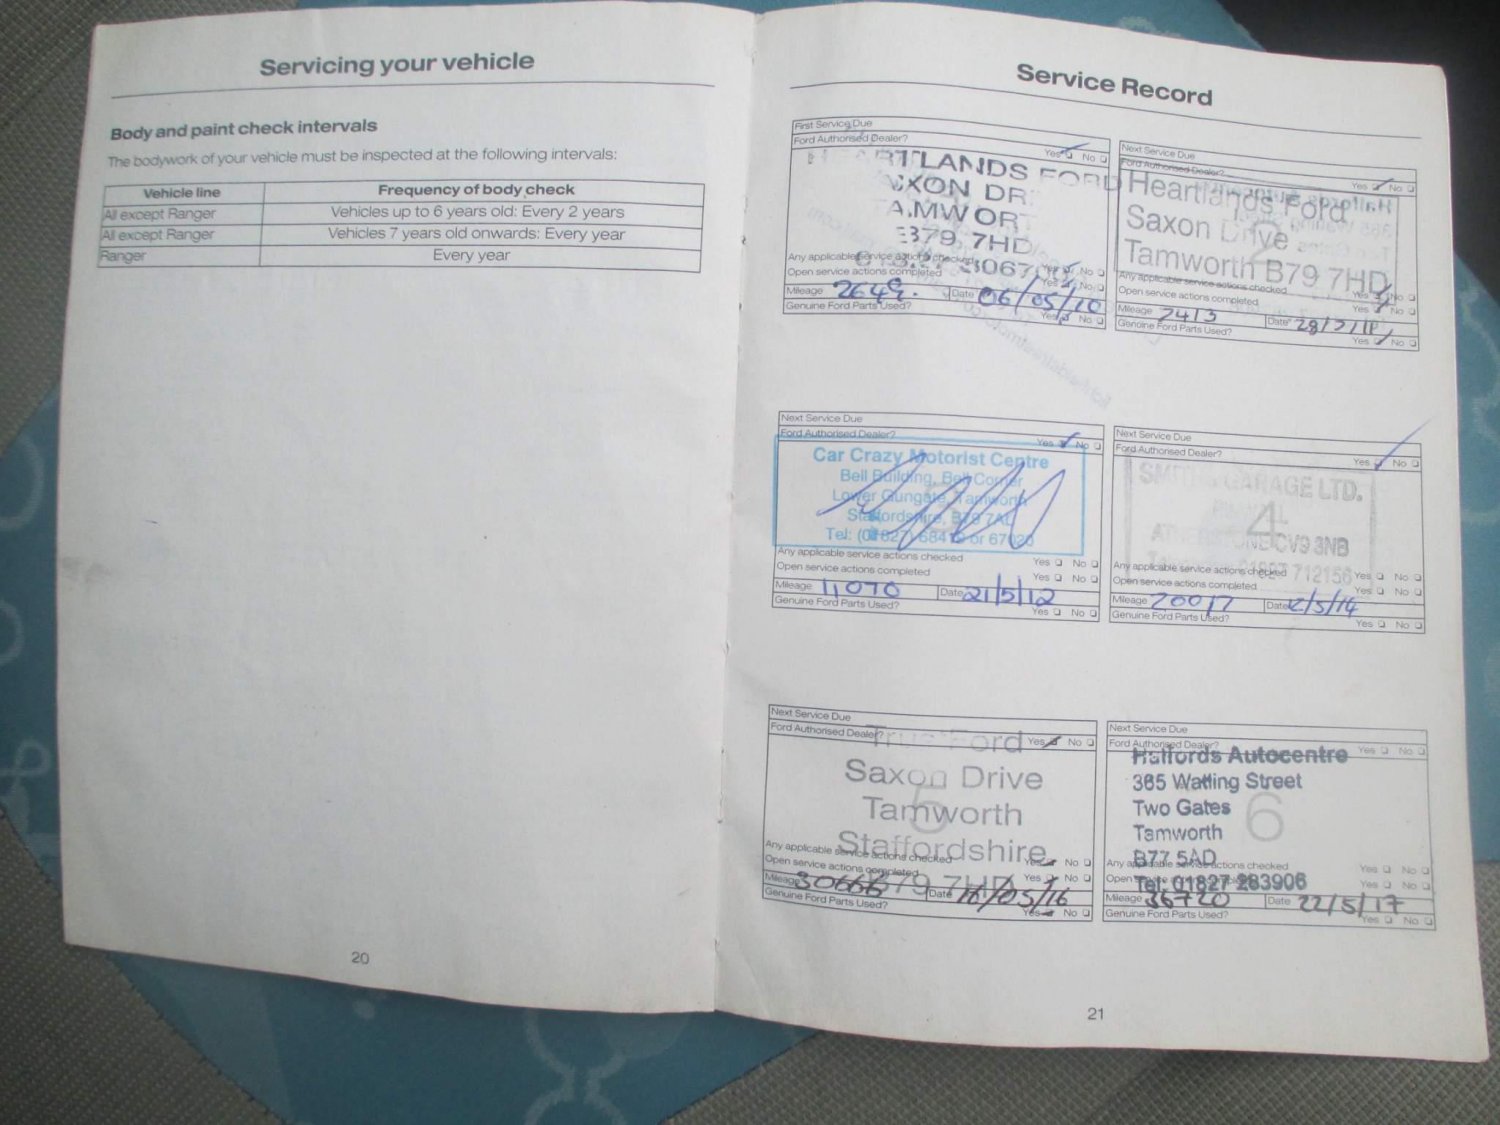 Servicing your vehicle
Body and paint check intervals
The bodywork of your vehicle must be inspected at the following intervals:
Vehicle line Frequency of body check
All except Ranger Vehicles up to 6 years old: Every 2 years
All except Ranger Vehicles 7 years old onwards: Every year
Ranger Every year
20
Service Record
First Service Due
Ford Authorised Dealer?
Yes No
FORD
B79 7HD
Any applicable service actions checked
Yes No
Open service actions completed
Yes No
Mileage 2649. Date 06/05/10
Genuine Ford Parts Used? Yes No
Next Service Due
Ford Authorised Dealer?
Yes No
Heartlands Ford
Saxon Drive
2
Tamworth B79 7HD
Any applicable service actions checked
Yes No
Open service actions completed
Yes No
Mileage 7413 Date
Genuine Ford Parts Used? Yes No
Next Service Due
Ford Authorised Dealer? Yes No
Car Crazy Motorist Centre
Bell Building, Bell Corner
Lower Gungate, Tamworth
Staffordshire, B79 7AL
Tel:
Any applicable service actions checked Yes No
Open service actions completed Yes No
Mileage 11,070 Date 21/5/12
Genuine Ford Parts Used? Yes No
Next Service Due
Ford Authorised Dealer? Yes No
GARAGE LTD.
4
CV9 3NB
712156
Any applicable service actions checked Yes No
Open service actions completed Yes No
Mileage 20017 Date
Genuine Ford Parts Used? Yes No
Next Service Due
Ford Authorised Dealer? Yes No
TrustFord
Saxon Drive
5
Tamworth
Staffordshire
Any applicable service actions checked Yes No
Open service actions completed Yes No
B79 7HD
Mileage 30666 Date 16/05/16
Genuine Ford Parts Used? Yes No
Next Service Due
Ford Authorised Dealer? Yes No
Halfords Autocentre
365 Watling Street
Two Gates
6
Tamworth
B77 5AD
Any applicable service actions checked Yes No
Tel: 01827 283906
Open service actions completed Yes No
Mileage 36720 Date 22/5/17
Genuine Ford Parts Used? Yes No
21